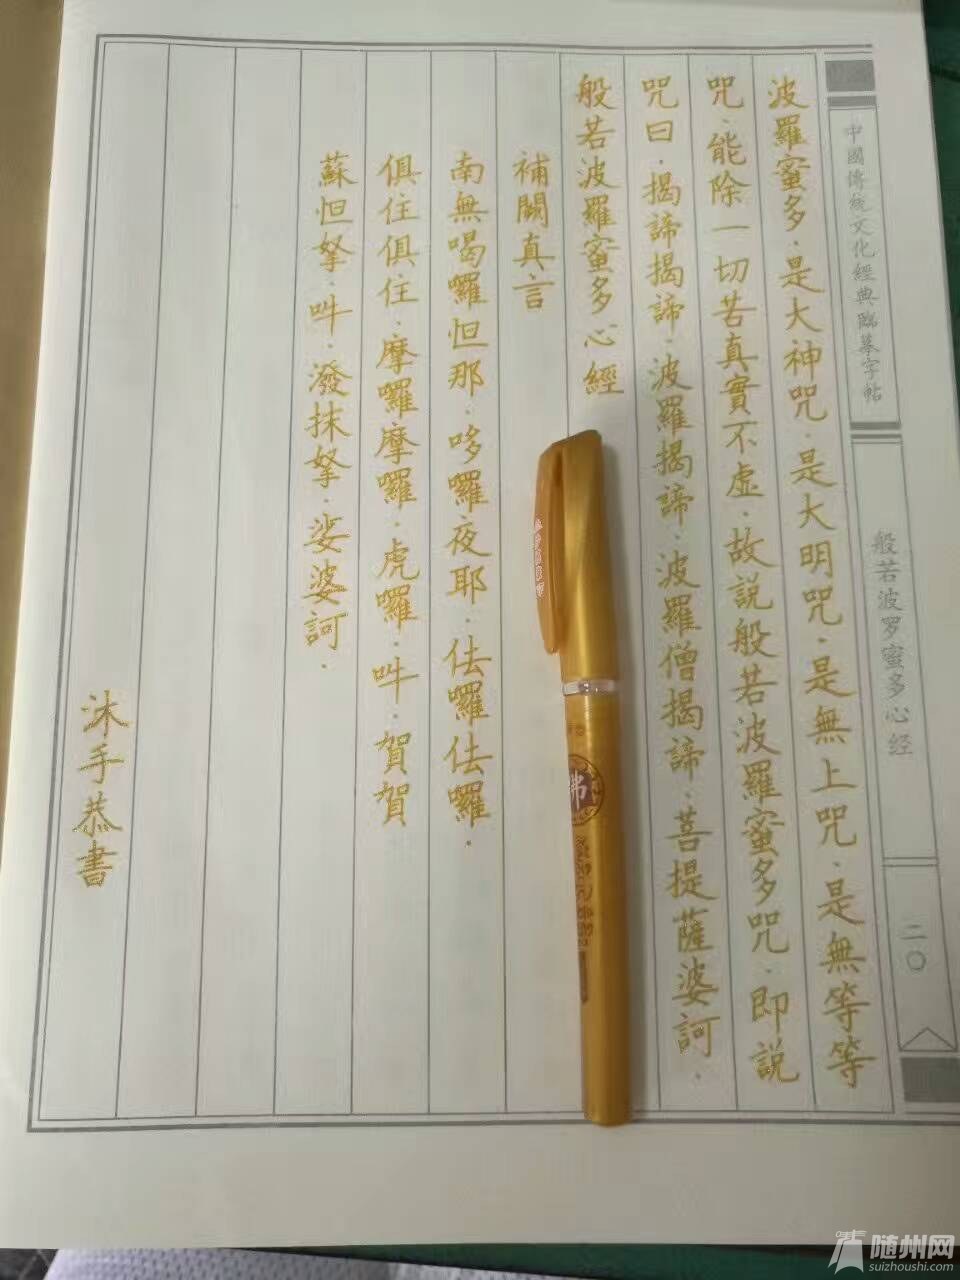 中國傳統文化經典臨摹字帖
般若波罗蜜多心经
二〇
波羅蜜多.是大神咒.是大明咒.是無上咒.是無等等
咒.能除一切苦真實不虛.故説般若波羅蜜多咒.即説
咒曰.揭諦揭諦.波羅揭諦.波羅僧揭諦.菩提薩婆訶.
般若波羅蜜多心經
補闕真言
南無喝囉怛那.哆囉夜耶.佉囉佉囉.
俱住俱住.摩囉摩囉.虎囉.吽.賀賀
蘇怛拏.吽.潑抹拏.娑婆訶.
沐手恭書
佛
随州网
suizhoushi.com